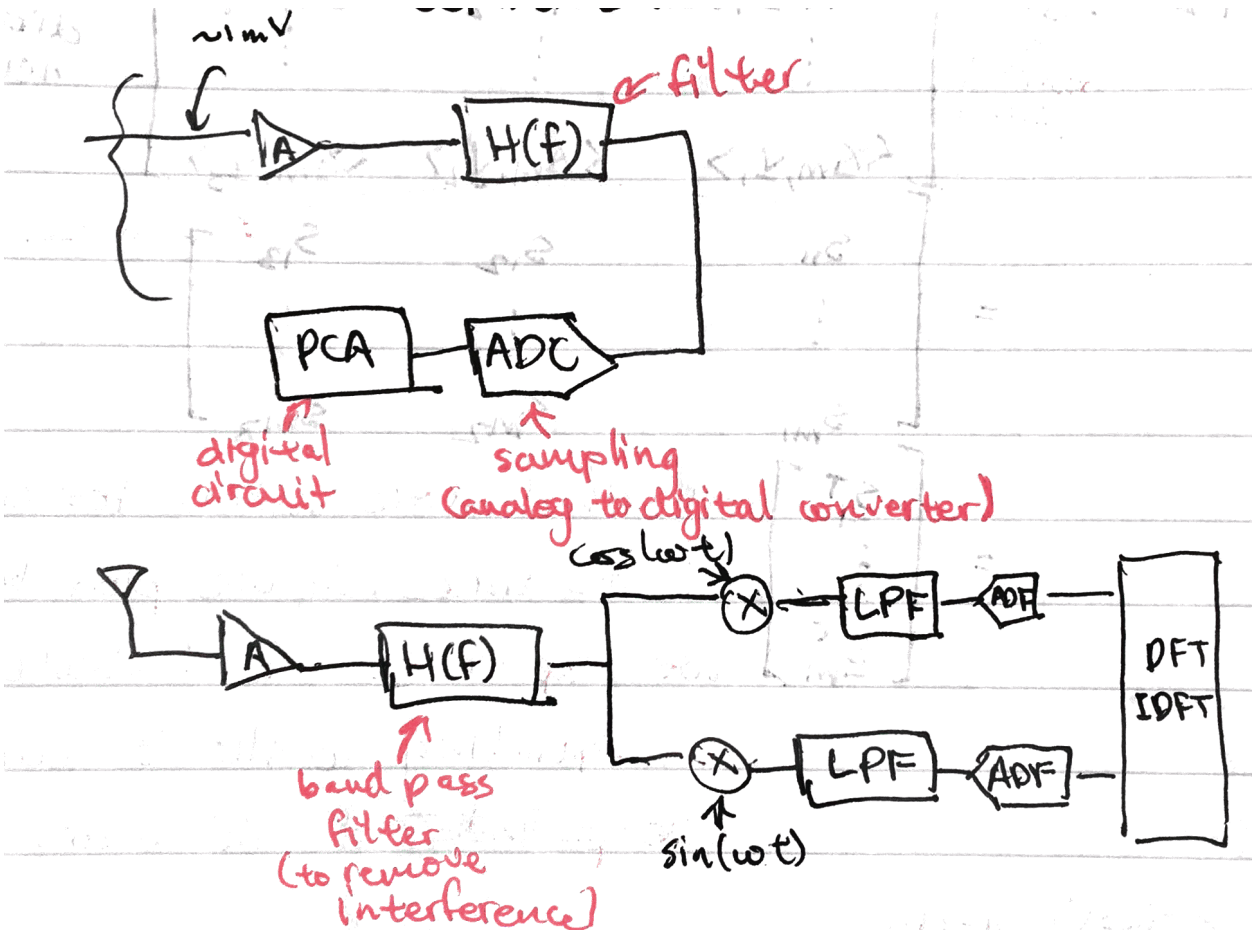 ~1mV
filter
A
H(f)
PCA
ADC
digital
circuit
sampling
(analog to digital converter)
cos(ωt)
X
LPF
ADF
A
H(f)
DFT
IDFT
band pass
filter
(to remove
interference)
X
LPF
ADF
sin(ωt)